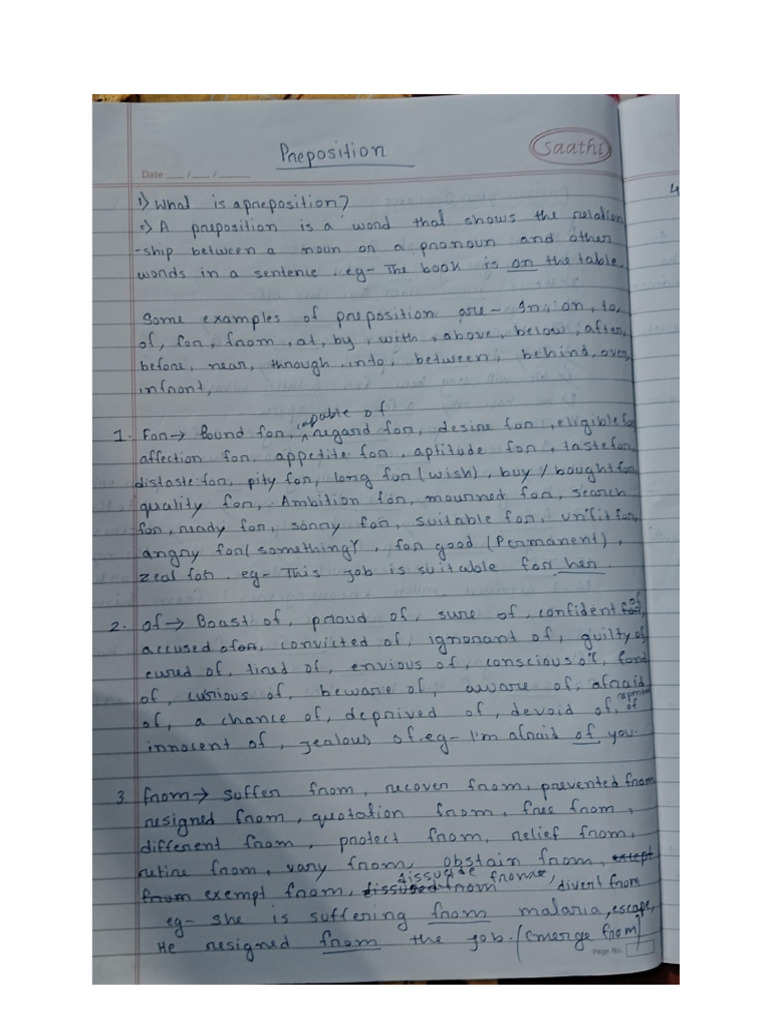 Preposition
Saathi
Date __/__/____
1) What is a preposition?
=) A preposition is a word that shows the relation
-ship between a noun or a pronoun and other
words in a sentence. eg- The book is on the table.
Some examples of preposition are - In, on, to,
of, for, from, at, by, with, above, below, after,
before, near, through, into, between, behind, over,
infront,
capable of
1. For → Bound for, regard for, desire for, eligible for
affection for, appetite for, aptitude for, taste for,
distaste for, pity for, long for (wish), buy / bought for
quality for, Ambition for, mourned for, search
for, ready for, sorry for, suitable for, unfit for,
angry for (something), for good (Permanent),
zeal for. eg- This job is suitable for her.
2. of → Boast of, proud of, sure of, confident of
accused of, convicted of, ignorant of, guilty of
cured of, tired of, envious of, conscious of, fond
of, curious of, beware of, aware of, afraid
of, a chance of, deprived of, devoid of, of
innocent of, jealous of. eg- I'm afraid of you.
3. from → suffer from, recover from, prevented from
resigned from, quotation from, free from,
different from, protect from, relief from,
retire from, vary from, obstain from, except
from exempt from, dissuade from, divert from
eg- she is suffering from malaria, escape,
He resigned from the job. (emerge from)
Page No.